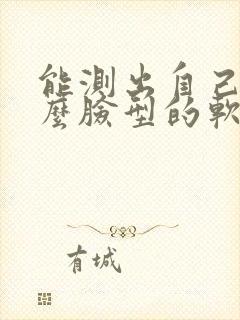 能測出自己
麼臉型的軟
有城